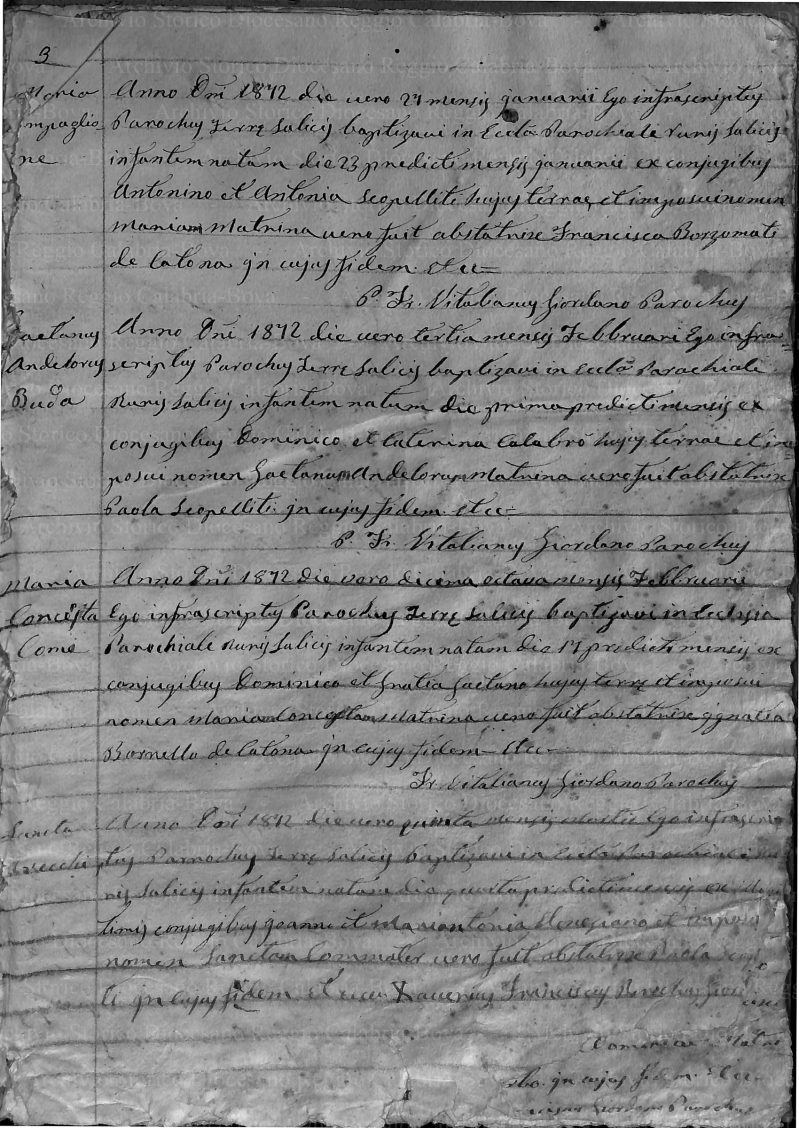 3
Maria
ne
Anno Dñi 1872 die vero 27 mensis januarii Ego infrascriptus
Parochus Terrę Salicis baptizavi in Eccłã Parochiale Ruris Salicis
infantem natam die 23 predicti mensis januarii ex conjugibus
Antonino et Antonia Scopelliti hujus terrae, et imposui nomen
Mariam Matrina vero fuit abstatrise Francisca Borzomati
de Catona jn cujus fidem. et cc=
P. Fr. Vitalianus Giordano Parochus
Gaetanus
Andelorus
Buda
Anno Dñi 1872 die vero tertia mensis Febbruari Ego infra=
scriptus Parochus Terrę Salicis baptizavi in Eccłã Parachiale
Ruris Salicis infantem natum die prima predicti mensis ex
conjugibus Dominico et Caterina Calabrò hujus terrae et im=
posui nomen Gaetanum Andelorum Matrina vero fuit abstatrise
Paola Scopelliti jn cujus fidem. et cc=
P. Fr. Vitalianus Giordano Parochus
Maria
Concetta
Come
Anno Dñi 1872 die vero dicima octava mensis Febbruarii
Ego infrascriptus Parochus Terrę Salicis baptizavi in Eclesia
Parochiale Ruris Salicis infantem natam die 17 predicti mensis ex
conjugibus Dominico et Gratia Gaetano hujus terrę et imposui
nomen Mariam Conceptam Matrina vero fuit abstatrise jgnatia
Bornello de Catona jn cujus fidem et cc=
Fr. Vitalianus Giordano Parochus
Sancta
Anno Dñi 1872 die vero quinta mensis Martii Ego infrascrip
tus Parrochus Terrę Salicis baptizavi in Eccłã Parochiale Ru
ris Salicis infantem natam die quarta predicti mensis ex
timis conjugibus joanne et Mariantonia Venesiano et imposui
nomen Sanctam Commater vero fuit abstatrise Paola
ti jn cujus fidem et Xaverius Franciscus Parochus
jn cujus fidem. et cc=
Giordano Parochus